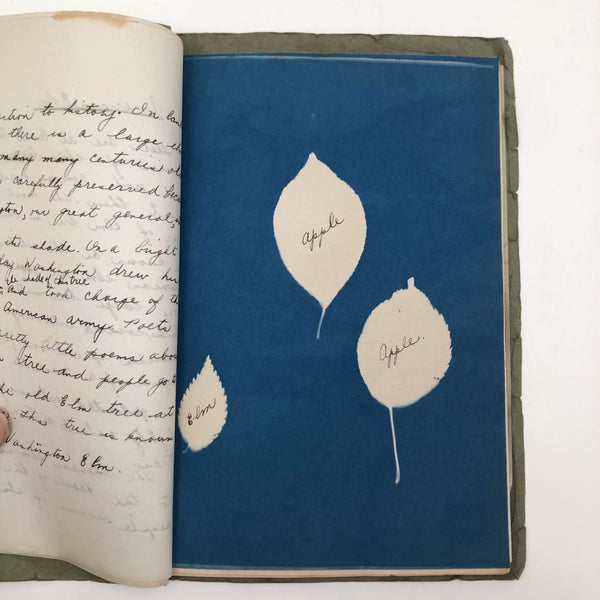 ition to history. In
there is a large
many many centuries
carefully preserved
gton, our great general,
its shade. On a bright
day Washington drew
the shade of this tree
and took charge of the
American army. Poets
pretty little poems
tree and people go
the old Elm tree at
This tree is known
Washington Elm.
apple
Apple.
Elm